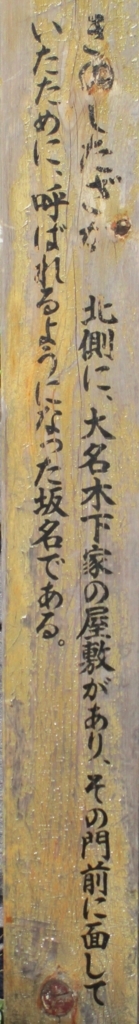 きのしたざか 北側に、大名木下家の屋敷があり、その門前に面して
いたために、呼ばれるようになった坂名である。